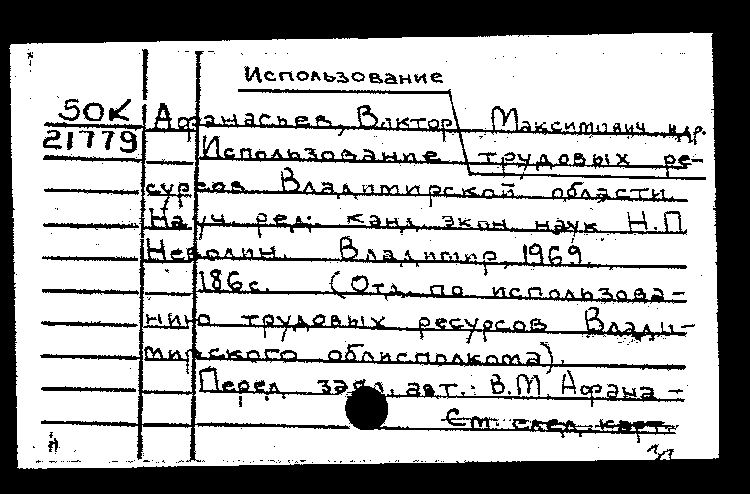 Использование
50К Афанасьев, Виктор Максимович и др.
21779 Использование трудовых ре-
сурсов Владимирской области.
Науч. ред: канд. экон. наук Н.П.
Неволин. Владимир, 1969.
186с. (Отд. по использова-
нию трудовых ресурсов Влади-
мирского облисполкома).
Перед загл. авт.: В.М. Афана-
См. след. карт.